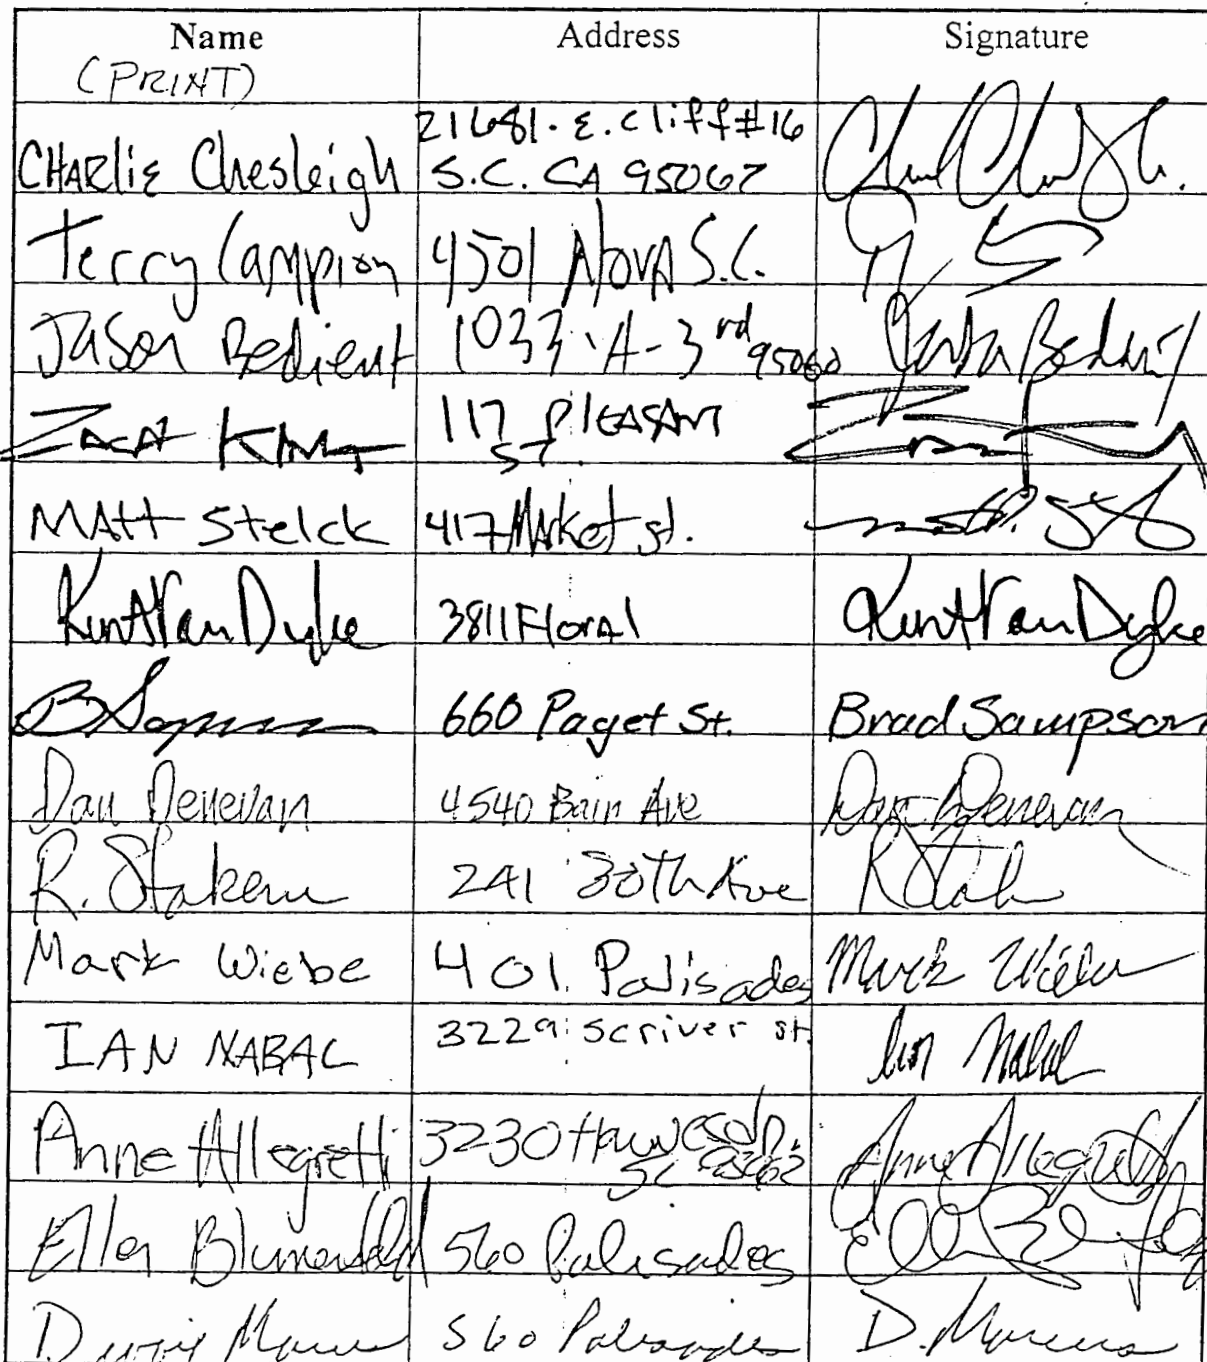 Name Address Signature
(PRINT)
21681. E. Cliff #16
CHARLIE Chesleigh S.C. CA 95062
Terry Campion 4501 NOVA S.C.
Jason Bedient 1033 A-3rd 95060 Bedient
ZACH 117 PLEASANT
ST.
MAtt Stelck 417 Market st.
Kurt Van Dyke 3811 Floral Kurt Van Dyke
B Sampson 660 Paget St. Brad Sampson
Dan Denevan 4540 Bain Ave Dan Denevan
R. 241 30th Ave R
Mark Wiebe 401 Palisades Mark Wiebe
IAN NABAL 3229 scriver st. Ian Nabal
Anne Allegretti 3230 Anne Allegretti
SC 95062
Ellen Blumenfeld 560 Palisades Ellen
560 Palisades D. Marcus